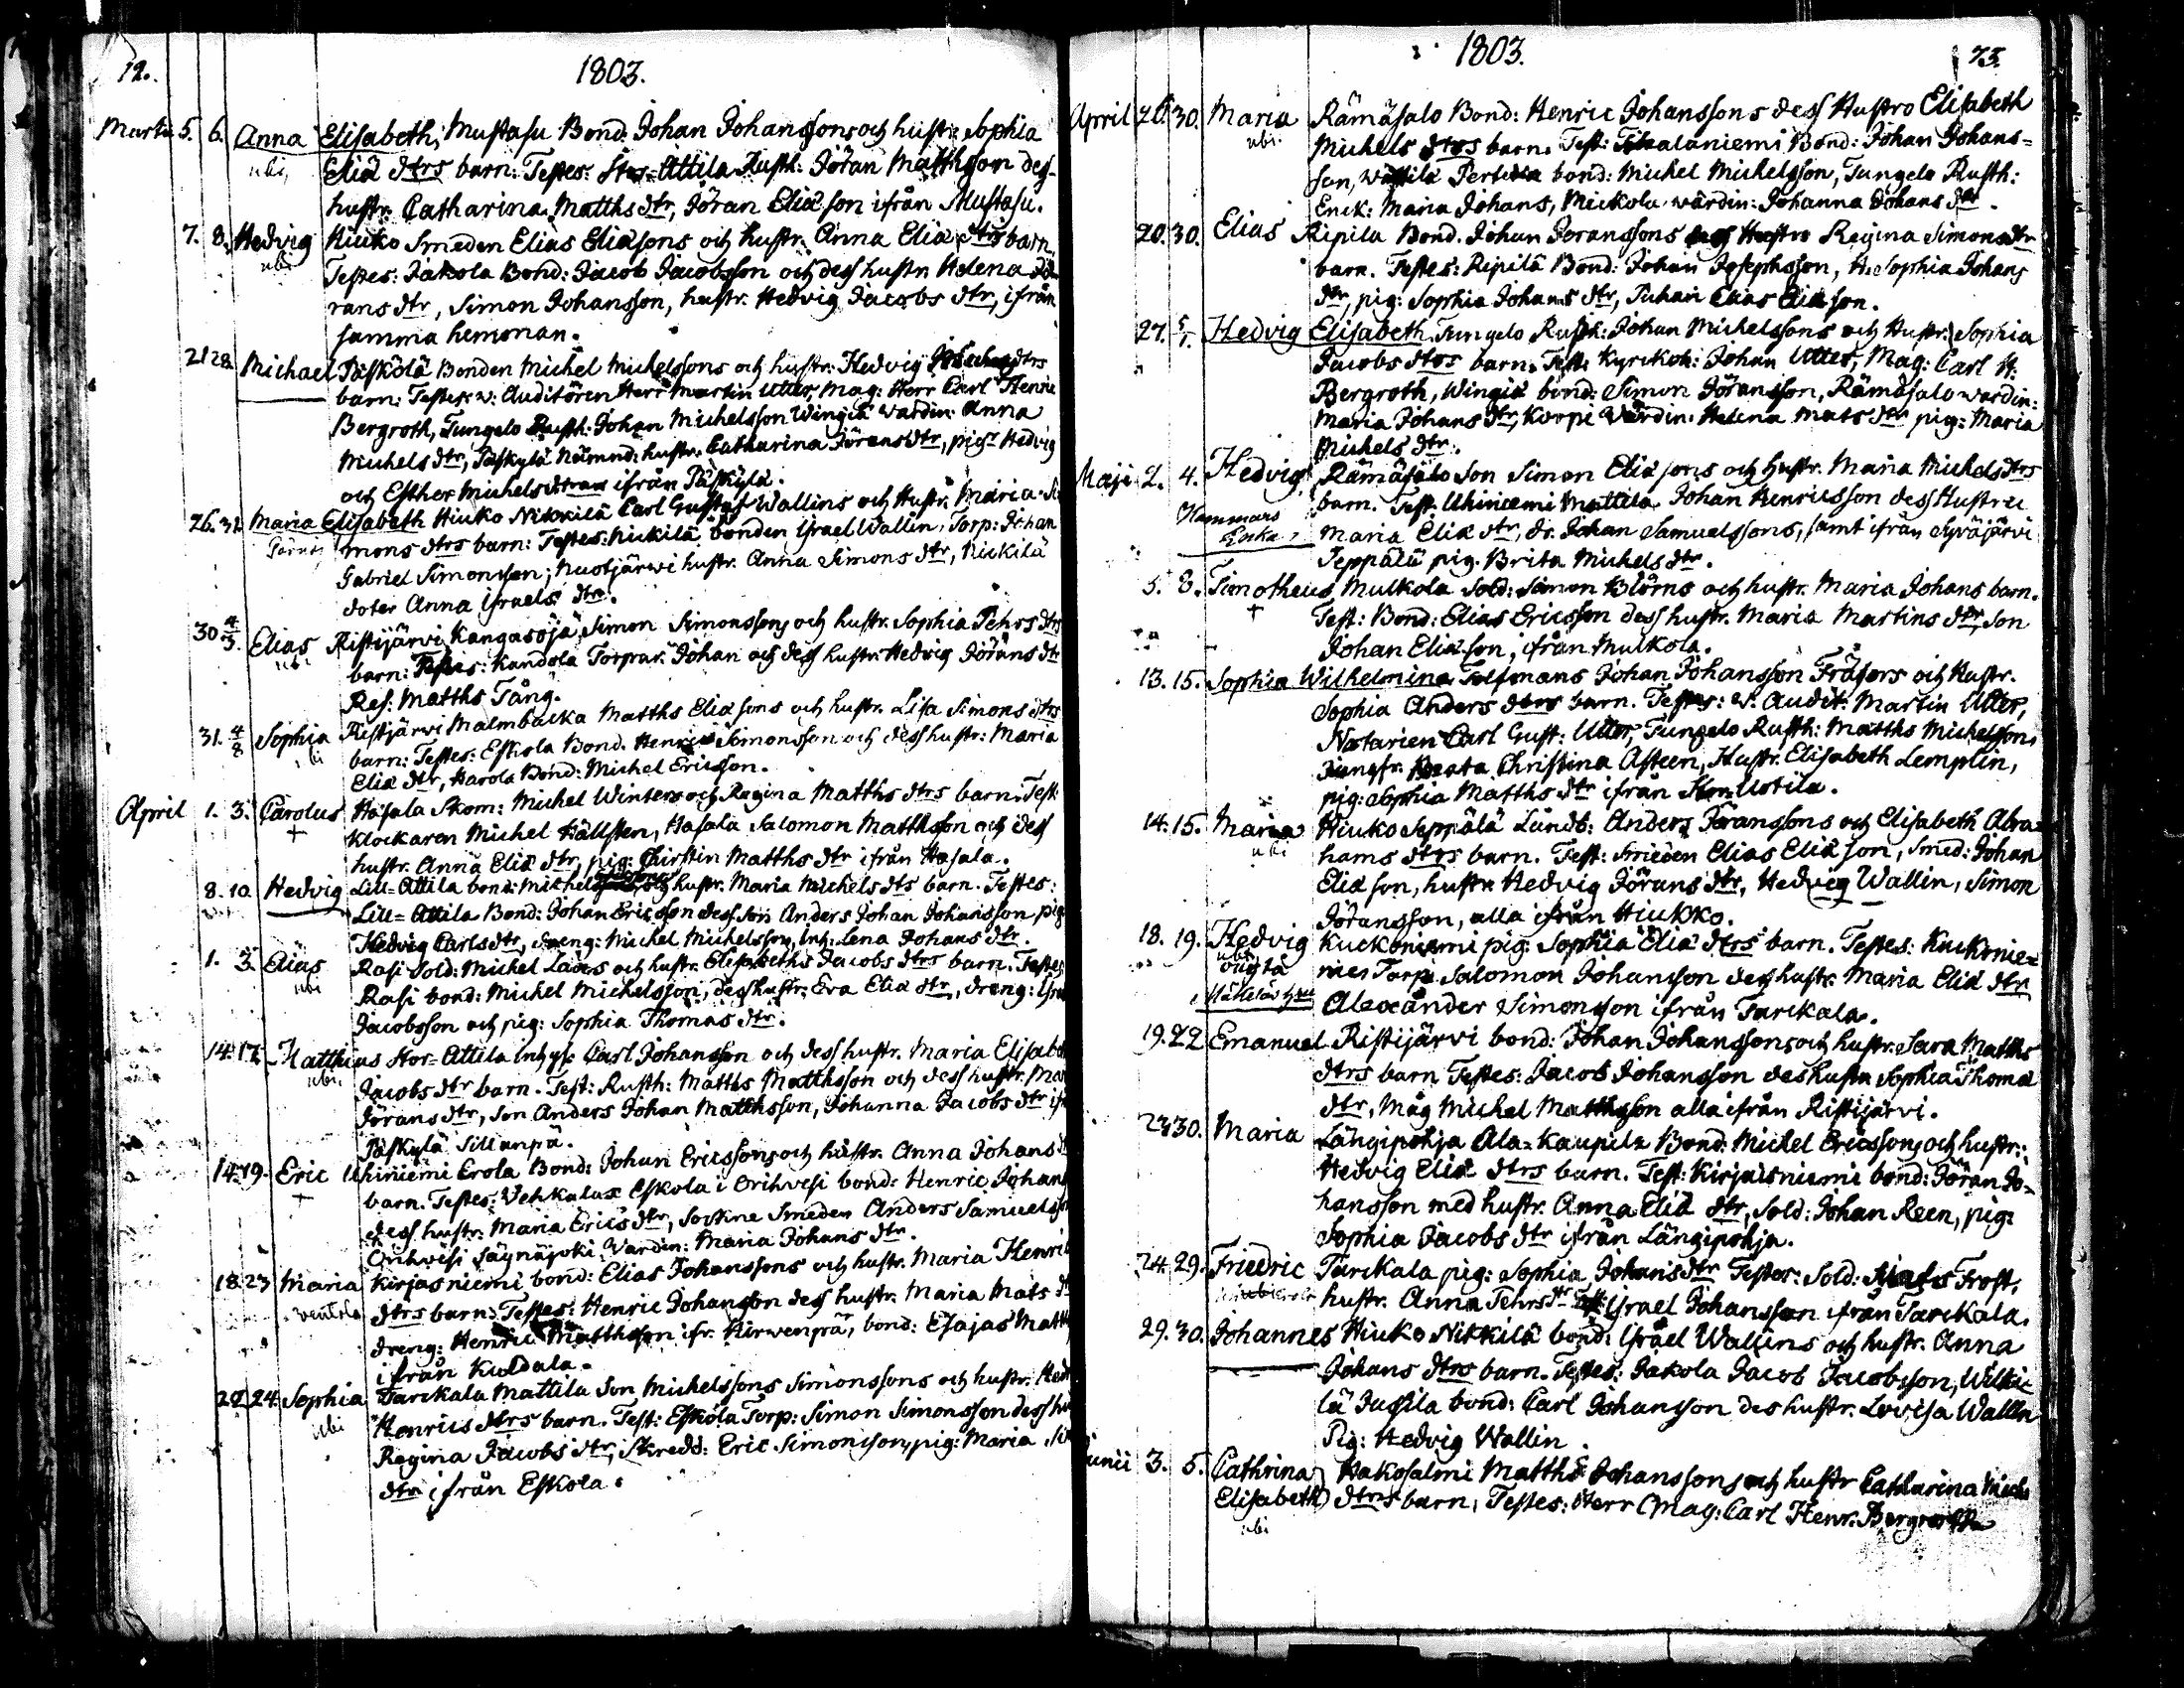 12.
1803.
Martii 5. 6. Anna Elisabeth, Mustasu Bond: Johan Johanssons och hustr: Sophia
ubi Eliæ dtrs barn: Testes: Stor-Attila Rusth: Jöran Matthsson des
hustr: Catharina Matths dtr, Jöran Eliæson ifrån Mustasu.
7. 8. Hedvig Hiuko Smeden Elias Eliæsons och hustr. Anna Eliæ dtrs barn.
ubi Testes: Jakola Bond: Jacob Jacobsson och dess hustr Helena Jö-
rans dtr, Simon Johansson, hustr. Hedvig Jacobs dtr, ifrån
samma hemman.
21 28 Michael Päskölä Bonden Michel Michelssons och hustr: Hedvig dtrs
barn: Testes: v: Auditören Herr Martin Utter, Mag: Herr Carl Henric
Bergroth, Tungelo Rusth: Johan Michelsson Wingiä wärdin: Anna
Michels dtr, Päskylä Nämnd: hustr: Catharina Jörans dtr, pigr Hedvig
och Esther Michels dtrar ifrån Päskylä.
26. 31. Maria Elisabeth Hiuko Nikkilä Carl Gustaf Wallins och Hustr: Maria Si
mons dtrs barn: Testes: Nickilä bonden Israel Wallin, Torp: Johan
Gabriel Simonsson; Nuotjärwi hustr. Anna Simons dtr, Nickilä
doter Anna Israels dtr.
30 4/3. Elias Ristijärvi Kangasoja Simon Simonssons och hustr. Sophia Pehrs dtrs
ubi barn: Testes: Kandola Torpar: Johan och dess hustr. Hedvig Jörans dtr
Res: Matths Tång.
31. 4/8 Sophia Ristjärvi Malmbacka Matths Eliæsons och hustr. Lisa Simons dtrs
ubi barn: Testes: Eskola Bond. Henric Simonsson och dess hustr: Maria
Eliæ dtr, Harola Bond: Michel Ericsson.
April 1. 3. Carolus Hasala Skom: Michel Winters och Regina Matths dtrs barn. Test:
+ Klockaren Michel Hällsten, Hasala Salomon Matthsson och dess
hustr. Anna Eliæ dtr, pig: Chirstin Matths dtr ifrån Hasala.
8. 10. Hedvig Lill-Attila bond: Michels och hustr. Maria Michels dts barn. Testes:
Lill-Attila Bond: Johan Ericsson dess son Anders Johan Johansson, pig:
Hedvig Carlsdtr, Dreng: Michel Michelsson, Inh: Lena Johans dtr.
1. 3. Elias Rasi Sold: Michel Laders och hustr. Elisabeths Jacobs dtrs barn. Testes
ubi Rasi bond: Michel Michelsson, des hustr: Eva Eliæ dtr, dreng: Isra
Jacobsson och pig: Sophia Thomas dtr.
14. 17. Matthias Stor-Attila Inhys: Carl Johansson och dess hustr. Maria Elisabet
ubi Jacobs dtr barn. Test: Rusth: Matths Matthsson och dess hustr. Mar
Jörans dtr, Son Anders Johan Matthsson, Johanna Jacobs dtr ifr
Päskylä Sillanpä.
14. 19. Eric Uhiniemi Erola Bond: Johan Ericssons och hustr. Anna Johans d
+ barn. Testes: Vehkalax Eskola i Orihvesi bond: Henric Johans
dess hustr. Maria Erics dtr, Sockne Smeden Anders Samuelsson
Orihwesi Säynäjoki Wardin: Maria Johans dtr.
18. 23 Maria Kirjasniemi bond: Elias Johanssons och hustr. Maria Henric
dtrs barn: Testes: Henric Johansson dess hustr. Maria Mats d
dreng: Henric Matthsson ifr. Hirwenpää, bond: Esajas Matth
ifrån Kuldala.
22 24. Sophia Tarckala Mattila Son Michelssons Simonssons och hustr. Hedv
ubi Henrics dtrs barn. Test: Eskola Torp: Simon Simonsson dess hu
Regina Jacobs dtr, Skredd: Eric Simonsson, pig: Maria Si
dtr ifrån Eskola.
1803.
73.
April 26. 30. Maria Rämäsalo Bond: Henric Johanssons dess Hustro Elisabeth
ubi Michels dtrs barn. Test: Tihalaniemi Bond: Johan Johans=
son, Wässilä Perttula bond: Michel Michelsson, Tungelo Rusth:
Enck: Maria Johans, Muckola wärdin: Johanna Johans dtr.
20. 30. Elias Ripila Bond. Johan Joranssons Regina Simons dtr
barn. Testes: Ripilä Bond: Johan Josephsson, H: Sophia Johans
dtr, pig: Sophia Johans dtr, Juhan Elias Eliæson.
27. 5/1 Hedvig Elisabeth Tungelo Rusth: Johan Michelssons och Hustr: Sophia
Jacobs dtrs barn. Test: Kyrckoh: Johan Utter, Mag: Carl H:
Bergroth, Wingiä bond: Simon Jöransson, Rämäsalo wardin:
Maria Johans dtr, Korpi Wärdin: Helena Mats dtr pig: Maria
Michels dtr.
Maji 2. 4. Hedvig Rämäsalo Son Simon Eliæsons och hustr. Maria Michels dtrs
barn. Test. Uhiniemi Mattila Johan Henricsson dess Hustru
Hammars Maria Eliæ dtr, dr. Johan Samuelssons, samt ifrån Syväjärvi
Enka, Seppälä pig. Brita Michels dtr.
5. 8. Timotheus Mulkola Sold: Simon Blöms och hustr. Maria Johans barn.
+ Test: Bond: Elias Ericsson dess hustr. Maria Martins dtr, Son
Johan Eliæson, ifrån Mulkola.
13. 15. Sophia Wilhelmina Tolfmans Johan Johansson Fräsers och Hustr.
Sophia Anders dtrs barn. Testes: v. Audit: Martin Utter,
Notarien Carl Gust: Utter, Tungelo Rusth: Matths Michelssons
Jungfr. Beata Christina Asteen, Hustr. Elisabeth Lemplin,
pig: Sophia Matths dtr ifrån Uotila.
14. 15. Maria Hiuko Seppälä Landb: Anders Jöranssons och Elisabeth Abra=
ubi hams dtrs barn. Test: Smeden Elias Eliæson, Smed: Johan
Eliæson, hustr. Hedvig Jörans dtr, Hedvig Wallin, Simon
Jöransson, alla ifrån Hiukko.
18. 19. Hedvig Kuckoniemi pig: Sophia Eliæ dtrs barn. Testes: Kuckonie=
ubi oägta mes Torp: Salomon Johansson des hustr. Maria Eliæ dtr
Alexander Simonsson ifrån Tarckala.
19. 22 Emanuel Ristijärvi bond: Johan Johanssons och hustr. Sara Matths
dtrs barn Testes: Jacob Johansson des hustr Sophia Thomæ
dtr, Måg Michel Matthsson alla ifrån Ristijärvi.
23 30. Maria Längipohja Ala-Kaupila Bond: Michel Ericssons och hustr:
Hedvig Eliæ dtrs barn. Test: Kirjaisniemi bond: Jöran Jo-
hansson med hustr. Anna Eliæ dtr, Sold: Johan Reen, pig:
Sophia Jacobs dtr ifrån Längipohja.
24. 29. Friedric Tarckala pig: Sophia Johans dtr Testes: Sold: Frost,
hustr. Anna Pehrs dtr Israel Johansson ifrån Tarckala.
29. 30. Johannes Hiuko Nikkilä bond: Israel Wallins och hustr. Anna
Johans dtrs barn. Testes: Jakola Jacob Jacobsson, Wilki-
lä Jussila bond: Carl Johansson des hustr. Lovisa Wallin
Pig: Hedvig Wallin.
Junii 3. 5. Cathrina Hakosalmi Matths Johanssons och hustr Catharina Michs
Elisabeth dtrs barn, Testes: Herr Mag: Carl Henr. Bergroth
ubi